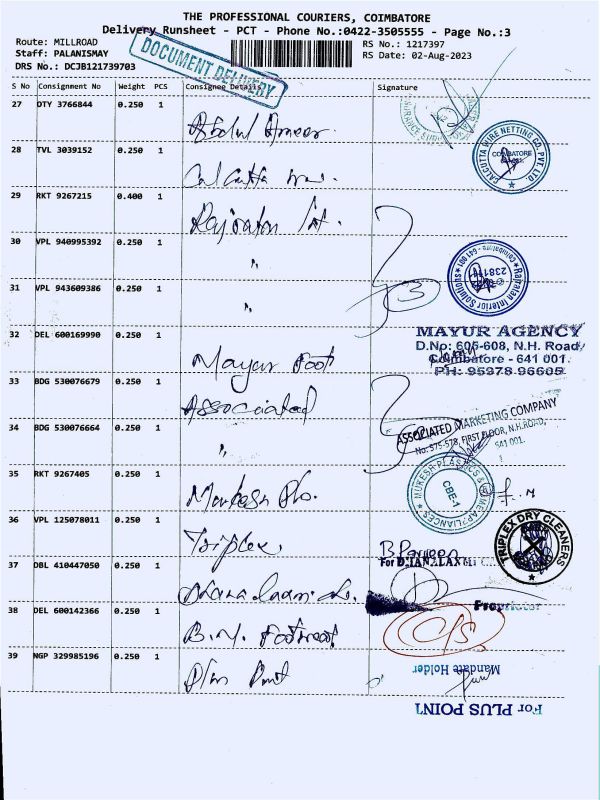 THE PROFESSIONAL COURIERS, COIMBATORE
Delivery Runsheet - PCT - Phone No.:0422-3505555 - Page No.:3
Route: MILLROAD
RS No.: 1217397
Staff: PALANISMAY
RS Date: 02-Aug-2023
DRS No.: DCJB121739703
DOCUMENT DELIVERY
S No Consignment No Weight PCS Consignee Details Signature
27 DTY 3766844 0.250 1
Abdul Ameer
28 TVL 3039152 0.250 1
Calcutta
CALCUTTA WIRE NETTING CO. PVT. LTD
COIMBATORE
29 RKT 9267215 0.400 1
Rajratan Int.
30 VPL 940995392 0.250 1
"
31 VPL 943609386 0.250 1
"
Rajratan Interior Solutions
Coimbatore - 641 001
32 DEL 600169990 0.250 1
Mayur Foot
MAYUR AGENCY
D.No: 606-608, N.H. Road,
Coimbatore - 641 001.
PH: 95978 96605
33 BDG 530076679 0.250 1
Associated
34 BDG 530076664 0.250 1
"
ASSOCIATED MARKETING COMPANY
No: 575-578, FIRST FLOOR, N.H.ROAD,
641 001.
35 RKT 9267405 0.250 1
Mukesh Pls.
MUKESH PLASTICS & HOME APPLIANCES
CBE-1
36 VPL 125078011 0.250 1
Triplex
TRIPLEX DRY CLEANERS
B Parveen
37 DBL 410447050 0.250 1
For DHANALAXMI
Proprietor
38 DEL 600142366 0.250 1
B.M. Footwear
39 NGP 329985196 0.250 1
Plus Point
Mandate Holder
For PLUS POINT